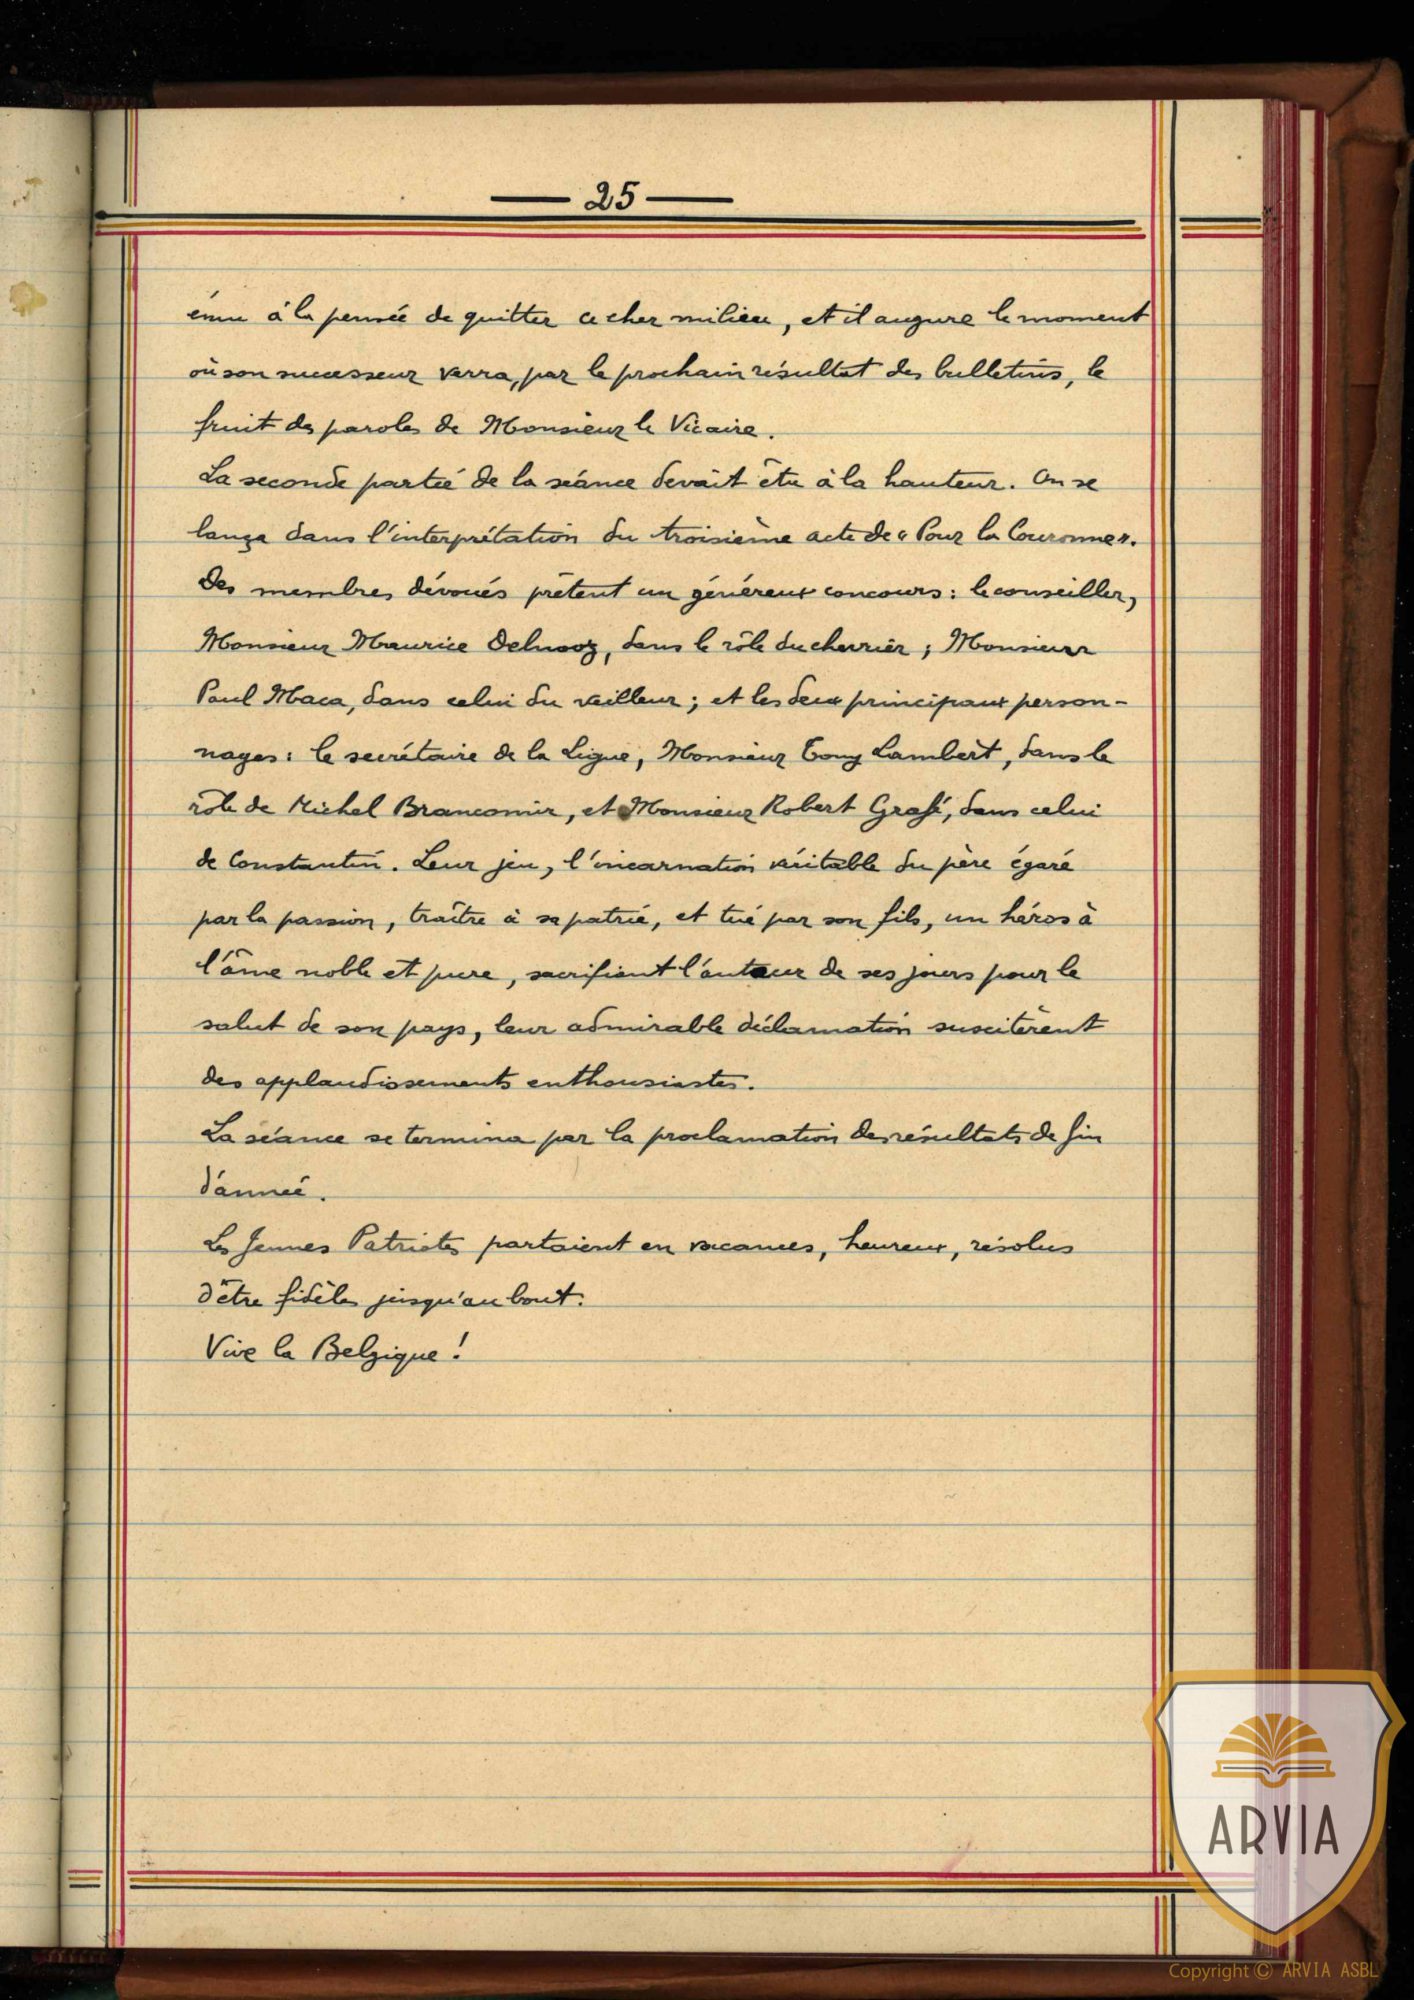 — 25 —
ému à la pensée de quitter ce cher milieu, et il augure le moment
où son successeur verra, par le prochain résultat des bulletins, le
fruit des paroles de Monsieur le Vicaire.
La seconde partie de la séance devait être à la hauteur. On se
lança dans l'interprétation du troisième acte de « Pour la Couronne ».
Des membres dévoués prêtent un généreux concours : le conseiller,
Monsieur Maurice Delnooz, dans le rôle du chevrier ; Monsieur
Paul Maca, dans celui du veilleur ; et les deux principaux person-
nages : le secrétaire de la Ligue, Monsieur Tony Lambert, dans le
rôle de Michel Brancomir, et Monsieur Robert Grafé, dans celui
de Constantin. Leur jeu, l'incarnation véritable du père égaré
par la passion, traître à sa patrie, et tué par son fils, un héros à
l'âme noble et pure, sacrifiant l'auteur de ses jours pour le
salut de son pays, leur admirable déclamation suscitèrent
des applaudissements enthousiastes.
La séance se termina par la proclamation des résultats de fin
d'année.
Les Jeunes Patriotes partaient en vacances, heureux, résolus
d'être fidèles jusqu'au bout.
Vive la Belgique !
ARVIA
Copyright © ARVIA ASBL